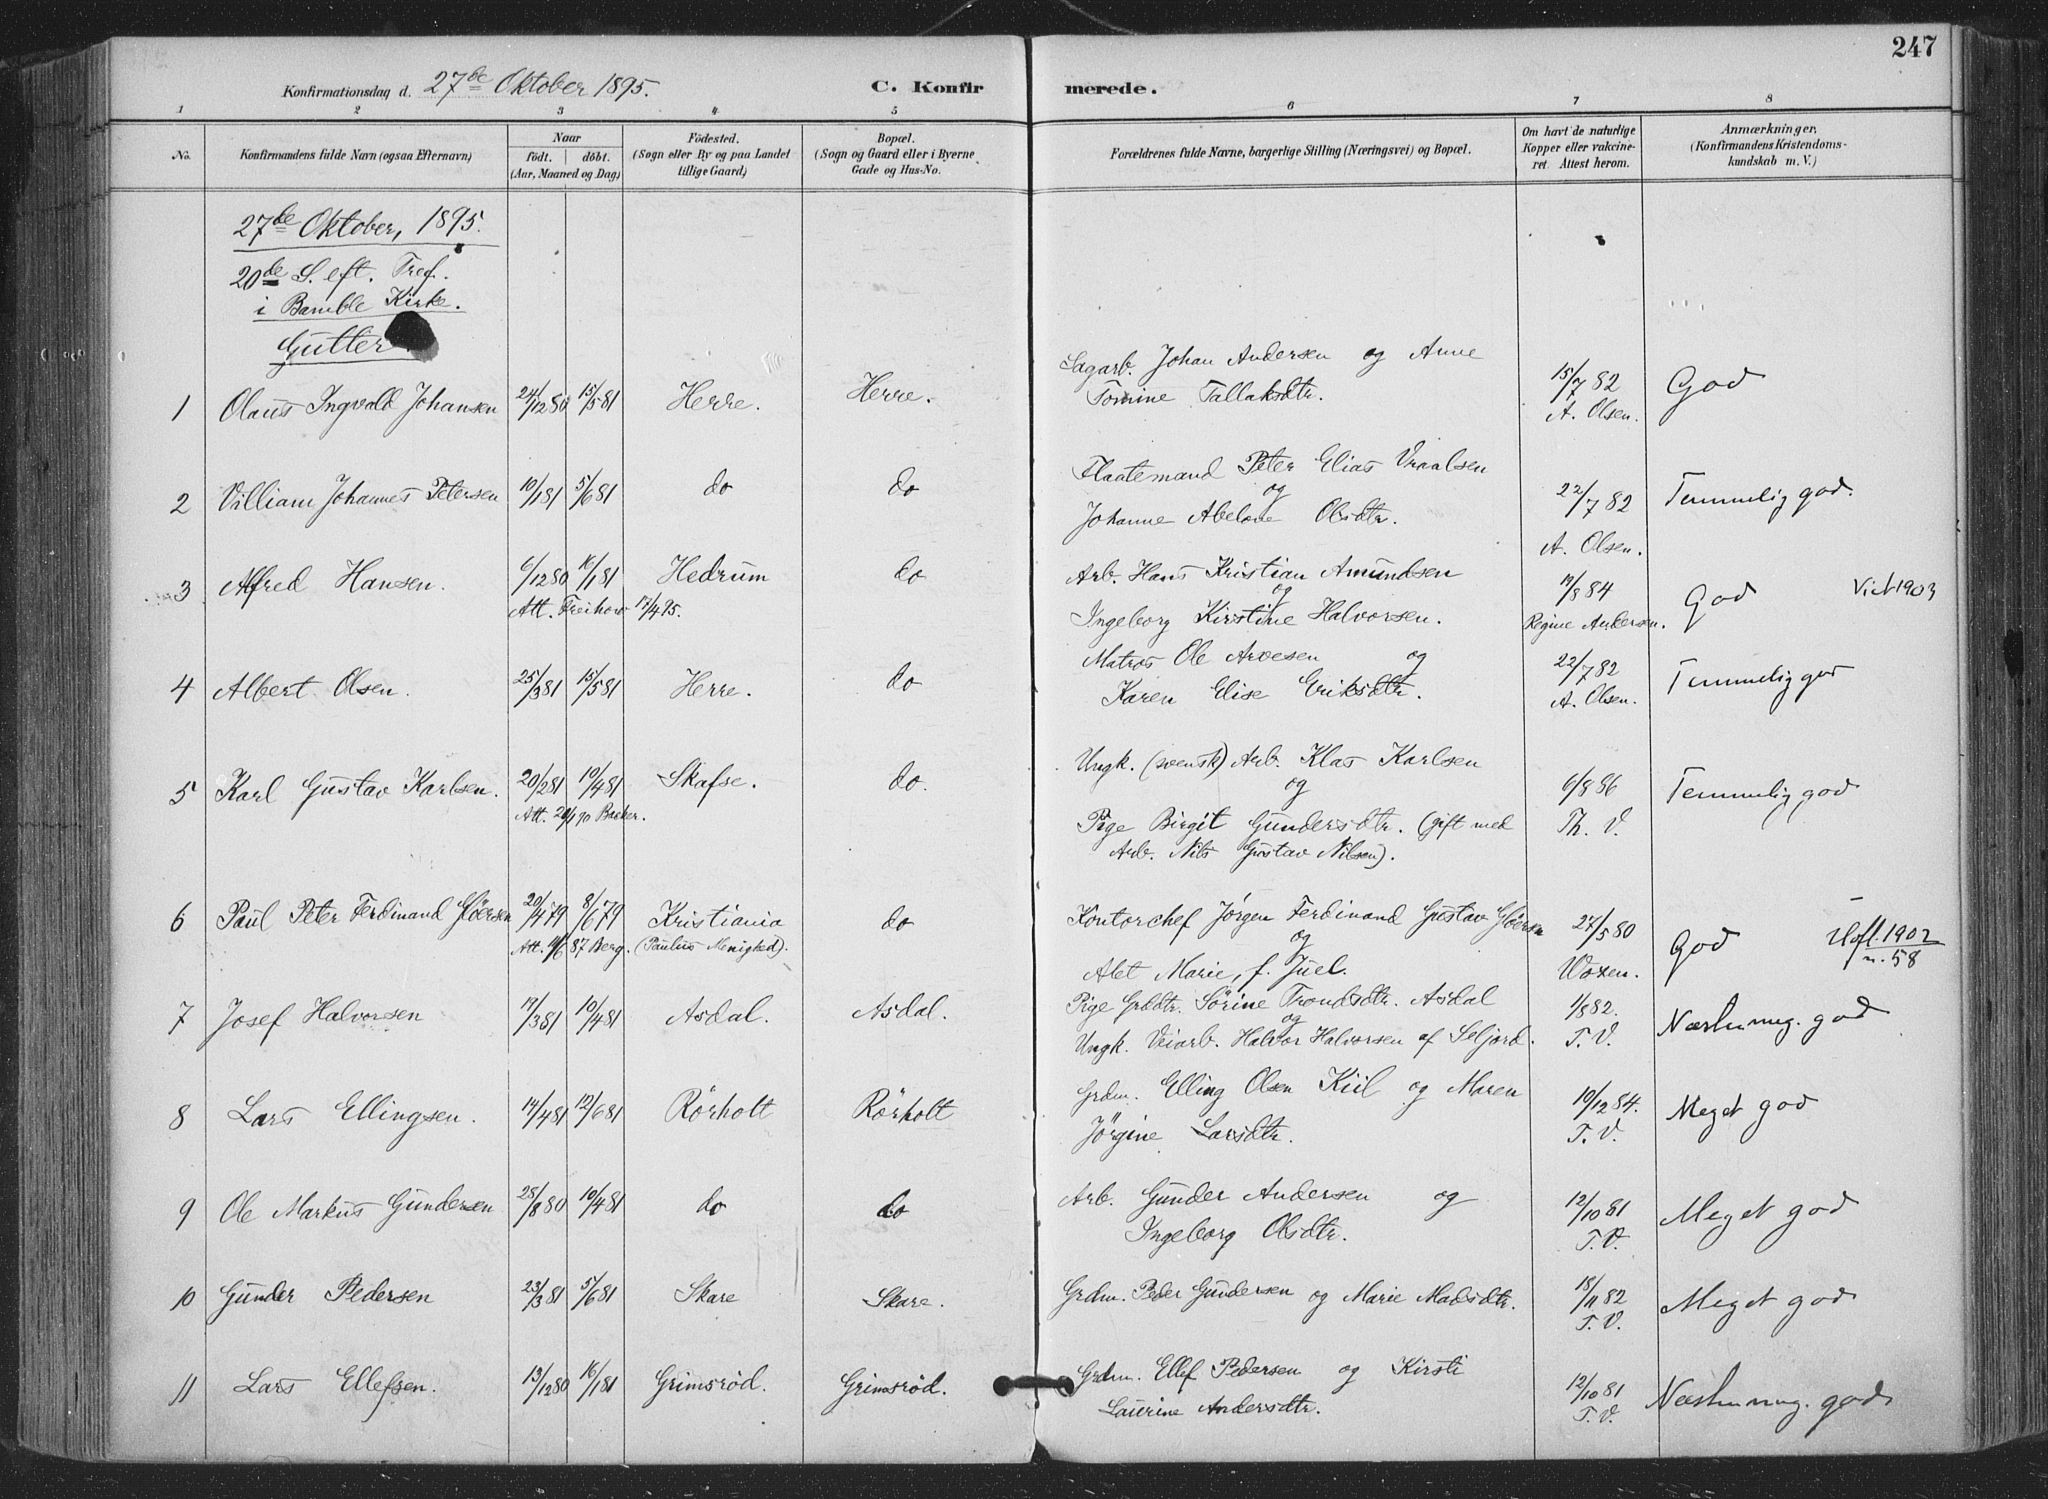 247
Konfirmationsdag d. 27de Oktober 1895. C. Konfirmerede.
1 2 3 4 5 6 7 8
No. Konfirmandens fulde Navn (ogsaa Efternavn)
Naar födt. döbt. (Aar, Maaned og Dag)
Födested. (Sogn eller By og paa Landet tillige Gaard)
Bopæl. (Sogn og Gaard eller i Byerne Gade og Hus-No.
Forældrenes fulde Navne, borgerlige Stilling (Næringsvei) og Bopæl.
Om havt de naturlige Kopper eller vakcineret. Attest herom.
Anmærkninger. (Konfirmandens Kristendomskundskab m. V.)
27de Oktober, 1895.
20de S. eft. Tref.
i Bamble Kirke.
Gutter
1 Olaus Ingvald Johansen 24/12 80 15/5 81 Herre. Herre. Sagarb. Johan Andersen og Anne
Tomine Tallaksdtr. 15/7 82 A. Olsen. God
2 Villiam Johannes Petersen 10/1 81 5/6 81 do do Flaatemand Peter Elias Vraalsen
og
Johanne Abelone Olsdtr. 22/7 82 A. Olsen. Temmelig god.
3 Alfred Hansen. 6/12 80 16/1 81 Hedrum do Arb. Hans Kristian Amundsen
Att. Freihow 17/4 95. og
Ingeborg Kirstine Halvorsen. 19/8 84 Regine Andersen. God Viet 1903
4 Albert Olsen. 25/3 81 15/5 81 Herre. do Matros Ole Arvesen og
Karen Elise Eriksdtr. 22/7 82 A. Olsen. Temmelig god
5 Karl Gustav Karlsen. 20/2 81 10/4 81 Skafse. do. Ungk. (svensk) Arb. Klas Karlsen
Att. Backer. og
Pige Birgit Gundersdtr. (gift med
Arb. Nils Gustav Nilsen). 6/8 86 Th. V. Temmelig god
6 Paul Peter Ferdinand Gløersen 20/4 79 8/6 79 Kristiania do Kontorchef Jørgen Ferdinand Gustav Gløersen
Att. 87 Berg. (Paulus Menighed). og
Alet Marie, f. Juel. 27/5 80 Woxen. God Udfl. 1902 n. 58
7 Josef Halvorsen 19/3 81 10/4 81 Asdal. Asdal. Pige Grddtr. Sörine Trondsdtr. Asdal
og
Ungk. Veiarb. Halvor Halvorsen af Seljord. 1/8 82. T. V. Næsten meg. god
8 Lars Ellingsen. 14/4 81 12/6 81 Rörholt Rörholt Grdm. Elling Olsen Kiil og Maren
Jörgine Larsdtr. 19/12 84. T. V. Meget god
9 Ole Markus Gundersen 28/8 80 10/4 81 do do Arb. Gunder Andersen og
Ingeborg Olsdtr. 12/10 81 T. V. Meget god
10 Gunder Pedersen 23/3 81 5/6 81 Skare Skare. Grdm. Peder Gundersen og Marie Madsdtr. 18/11 82 T. V. Meget god
11 Lars Ellefsen. 13/12 80 16/1 81 Grimsröd. Grimsröd. Grdm. Ellef Pedersen og Kirsti
Laurine Andersdtr. 12/10 81 T. V. Næsten meg. god